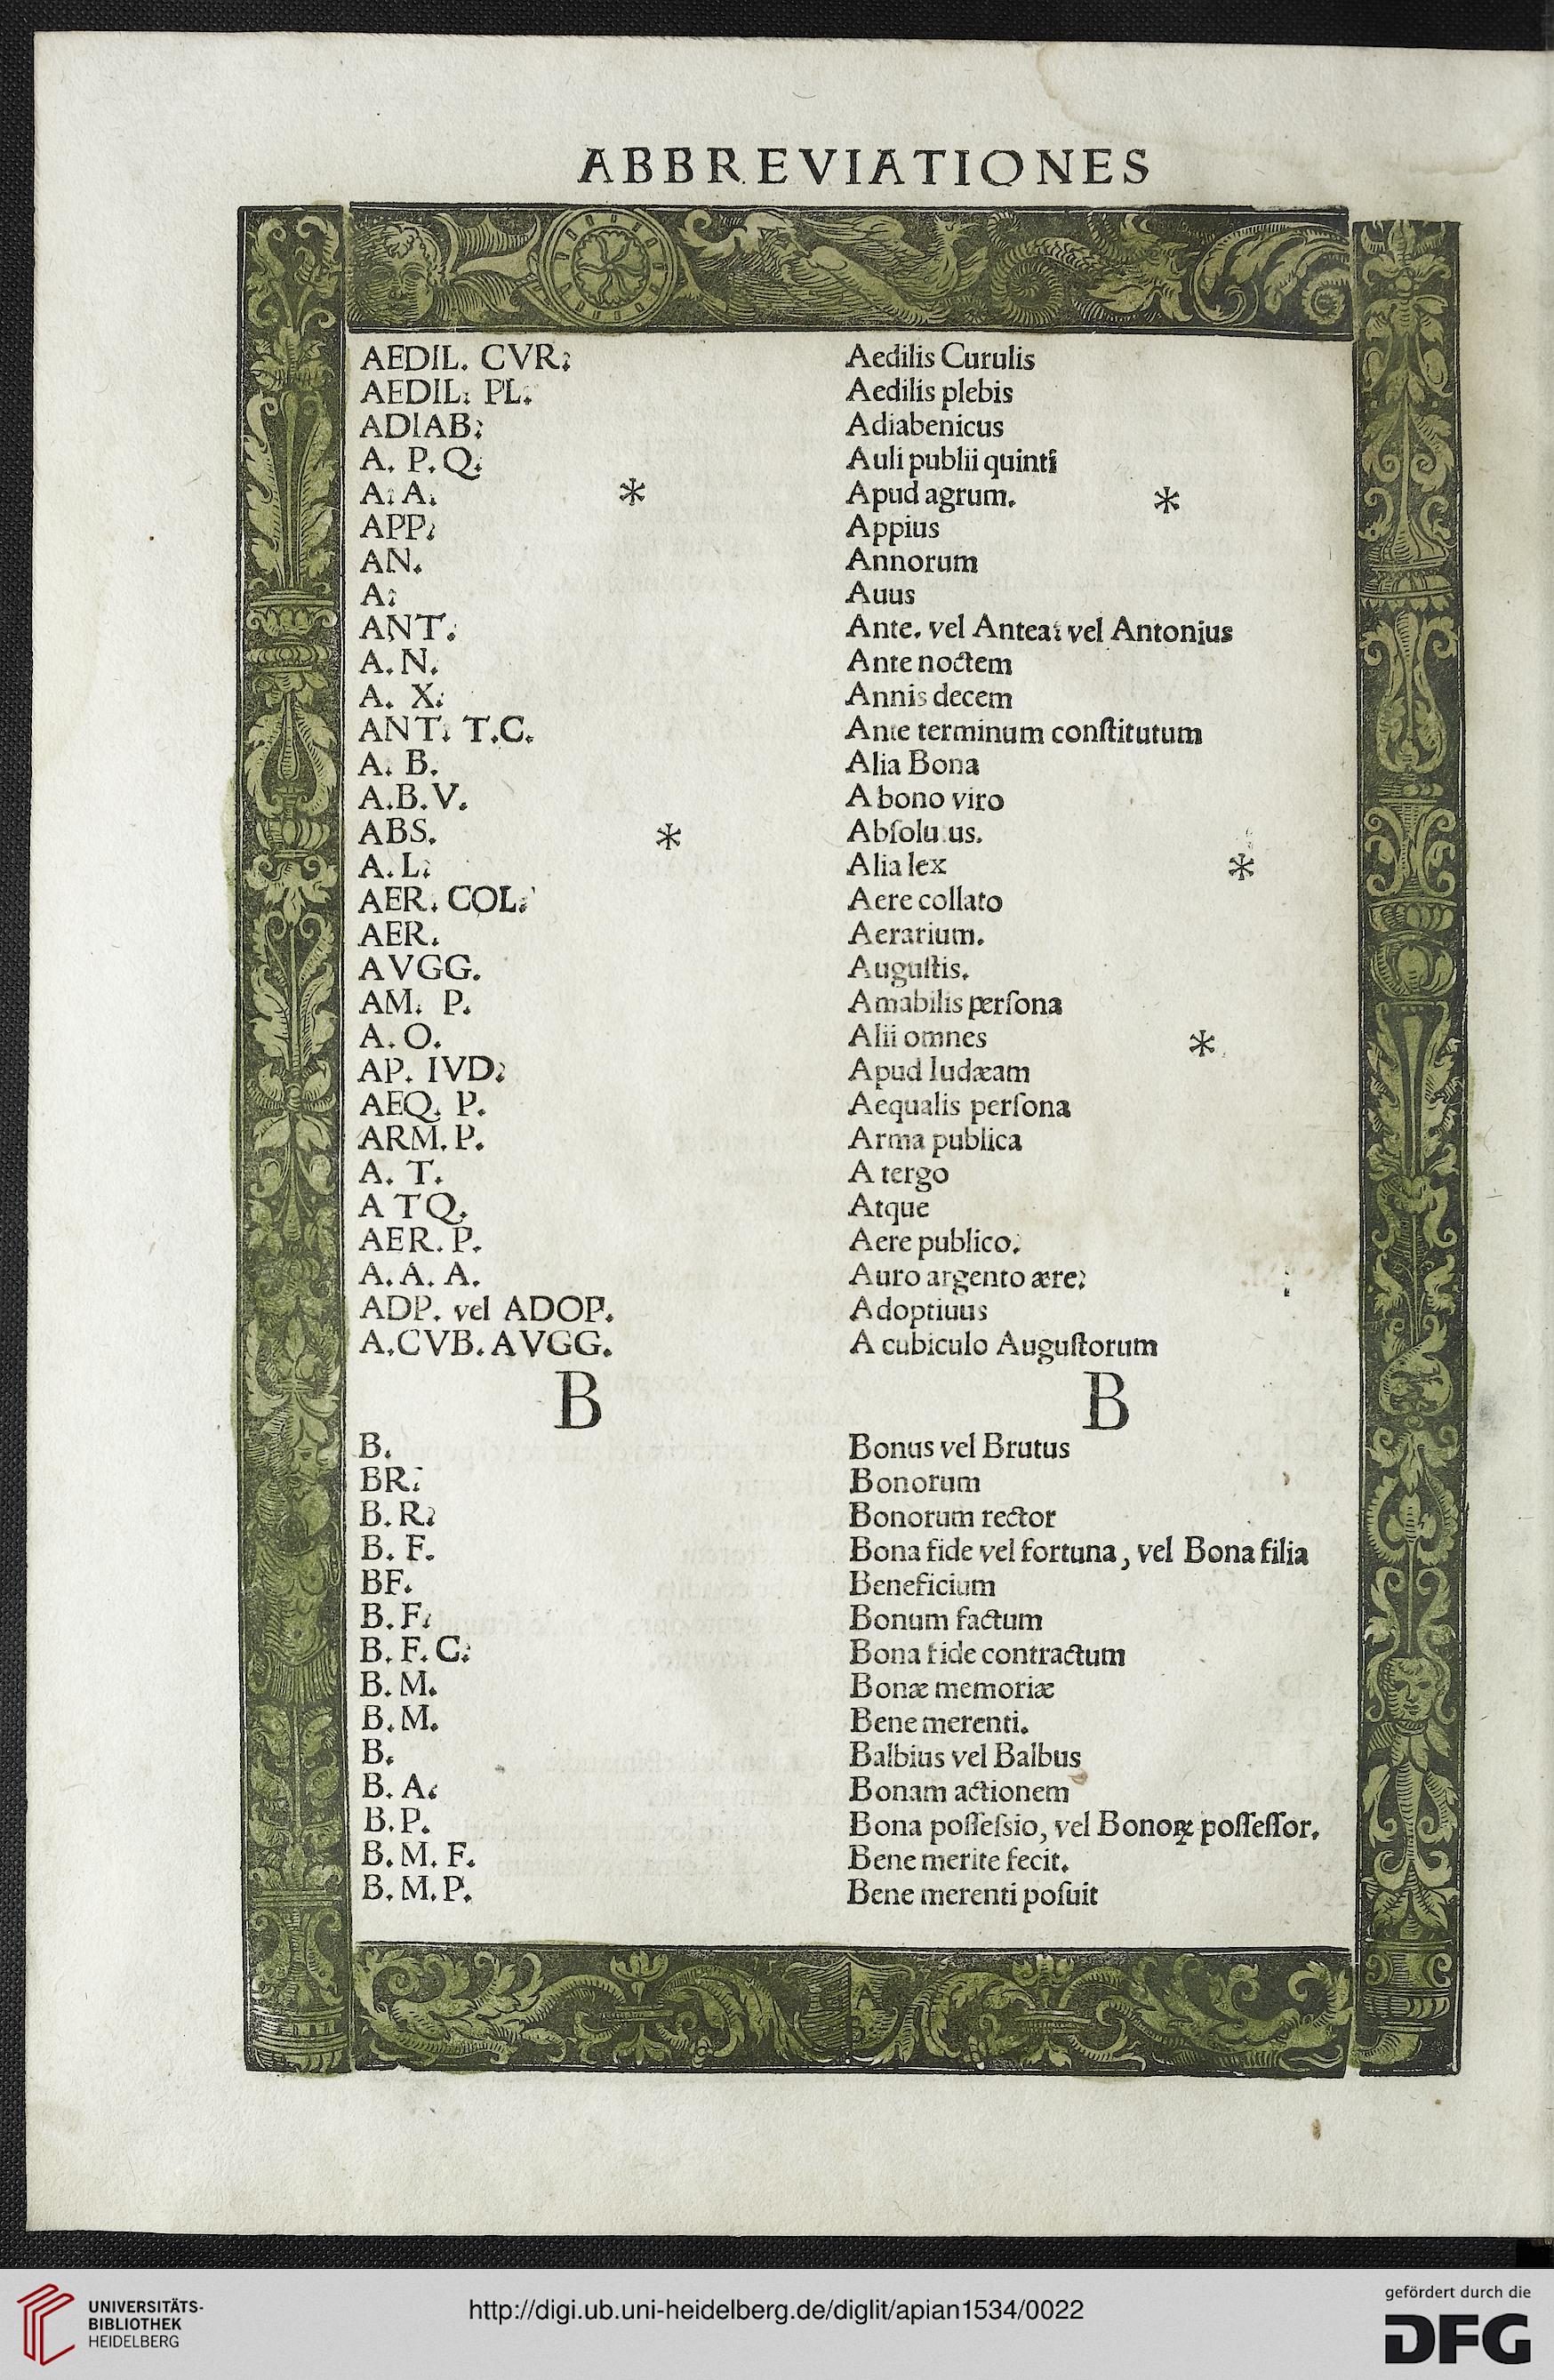 ABBREVIATIONES
AEDIL. CVR: Aedilis Curulis
AEDIL: PL. Aedilis plebis
ADIAB: Adiabenicus
A. P. Q. Auli publii quinti
A: A. * Apud agrum. *
APP: Appius
AN. Annorum
A: Auus
ANT. Ante. vel Antea: vel Antonius
A. N. Ante noctem
A. X: Annis decem
ANT: T.C. Ante terminum conſtitutum
A. B. Alia Bona
A.B.V. A bono viro
ABS. * Abſolu us.
A. L: Alia lex *
AER. COL. Aere collato
AER. Aerarium.
AVGG. Auguſtis.
AM. P. Amabilis perſona
A. O. Alii omnes *
AP. IVD: Apud Iudæam
AEQ. P. Aequalis perſona
ARM. P. Arma publica
A. T. A tergo
ATQ. Atque
AER. P. Aere publico.
A. A. A. Auro argento ære:
ADP. vel ADOP. Adoptiuus
A.CVB.AVGG. A cubiculo Auguſtorum
B B
B. Bonus vel Brutus
BR: Bonorum
B. R: Bonorum rector
B. F. Bona fide vel fortuna, vel Bona filia
BF. Beneficium
B. F: Bonum factum
B. F. C: Bona fide contractum
B. M. Bonæ memoriæ
B. M. Bene merenti.
B. Balbius vel Balbus
B. A. Bonam actionem
B. P. Bona poſſeſsio, vel Bonoꝝ poſſeſſor.
B. M. F. Bene merite fecit.
B. M. P. Bene merenti poſuit
UNIVERSITÄTS-
BIBLIOTHEK
HEIDELBERG
http://digi.ub.uni-heidelberg.de/diglit/apian1534/0022
gefördert durch die
DFG